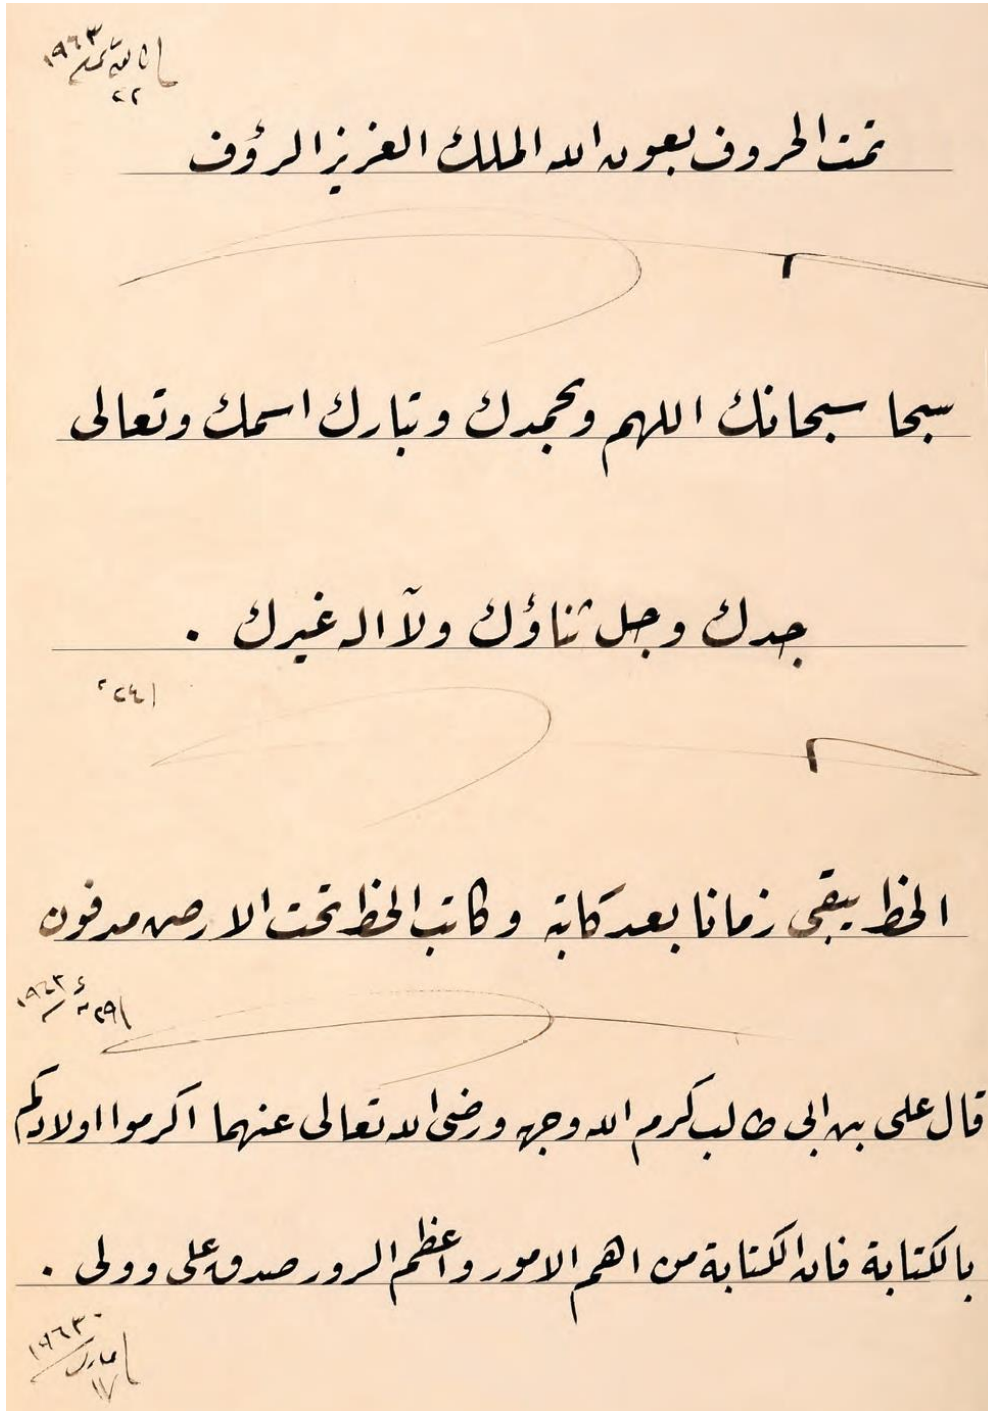 ١٩٦٣
٢٢
تمت الحروف بعون الله الملك العزيز الرؤف
سبحا سبحانك اللهم وبحمدك وتبارك اسمك وتعالى
جدك وجل ثناؤك ولآ اله غيرك .
الخط يبقى زمانا بعد كاتبه وكاتب الخط تحت الارض مدفون
٢٩ ١٩٦٣
قال على بن ابى طالب كرم الله وجهه ورضى الله تعالى عنهما اكرموا اولادكم
بالكتابة فان الكتابة من اهم الامور واعظم السرور صدق على وولى .
١٩٦٣
مارت
١٧